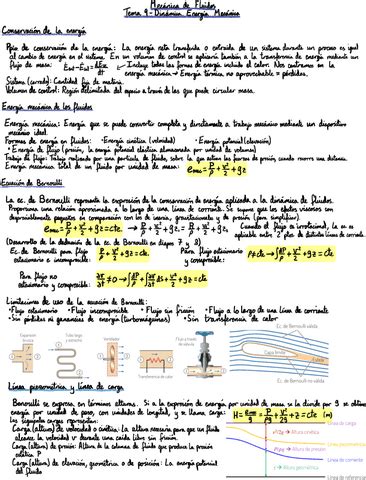 Mecánica de Fluidos
Tema 4 - Dinámica: Energía Mecánica
Conservación de la energía
Ppio de conservación de la energía: La energía neta transferida o extraída de un sistema durante un proceso es igual
al cambio de energía en el sistema. En un volumen de control se aplicaría también a la transferencia de energía mediante un
flujo de masa: Incluye todas las formas de energía incluido el calor. Nos centramos en la
energía mecánica → Energía térmica no aprovechable = pérdidas.
Sistema (cerrado): Cantidad fija de materia.
Volumen de control: Región delimitada del espacio a través de las que puede circular masa.
Energía mecánica de los fluidos
Energía mecánica: Energía que se puede convertir completa y directamente a trabajo mecánico mediante un dispositivo
mecánico ideal.
Formas de energía en fluidos: • Energía cinética (velocidad) • Energía potencial (elevación)
• Energía de flujo (presión, la energía potencial elástica almacenada por unidad de volumen)
Trabajo de flujo: Trabajo realizado por una partícula de fluido, sobre la que actúan las fuerzas de presión, cuando recorre una distancia.
Energía mecánica total de un fluido por unidad de masa: e_mec = P/ρ + v²/2 + gz
Ecuación de Bernoulli
La ec. de Bernoulli representa la expresión de la conservación de energía aplicada a la dinámica de fluidos.
Proporciona una relación aproximada a lo largo de una línea de corriente. Se supone que los efectos viscosos son
despreciablemente pequeños en comparación con los de inercia, gravitacionales y de presión (para simplificar).
e_mec = P/ρ + v²/2 + gz = cte Cuando el flujo es irrotacional, la ec es
aplicable entre 2 ptos de distintas líneas de corriente.
(Desarrollo de la deducción de la ec. de Bernoulli en diapos 7 y 2)
Ec. de Bernoulli para flujo P/ρ + v²/2 + gz = cte Para flujo estacionario ρ≠cte → ∫dP/ρ + v²/2 + gz = cte
estacionario e incompresible: y compresible:
Para flujo no
estacionario y compresible:
Limitaciones de uso de la ecuación de Bernoulli:
• Flujo estacionario • Flujo incompresible • Flujo sin fricción • Flujo a lo largo de una línea de corriente
• Sin pérdidas ni ganancias de energía (turbomáquinas) • Sin transferencia de calor
Expansión brusca
Tubo largo y estrecho
Ventilador
Transferencia de calor
Flujo a través de válvula
Ec. de Bernoulli válida
Capa límite
Estela
Ec. de Bernoulli no válida
Línea piezométrica y línea de carga
Bernoulli se expresa, en términos alturas. Si a la expresión de energía por unidad de masa se la divide por g se obtiene
energía por unidad de peso, con unidades de longitud, y se llama carga: H = e_mec/g = P/ρg + v²/2g + z = cte (m)
Las segundas cargas representan:
Carga (altura) de velocidad o cinética: La altura necesaria para que un fluido
alcance la velocidad v durante una caída libre sin fricción.
Carga (altura) de presión: Altura de la columna de fluido que produce la presión
estática P
Carga (altura) de elevación, geométrica o de posición: La energía potencial
del fluido
Línea de carga
Altura cinética
Línea piezométrica
Altura de presión
Línea de corriente
Altura geométrica
Línea de referencia